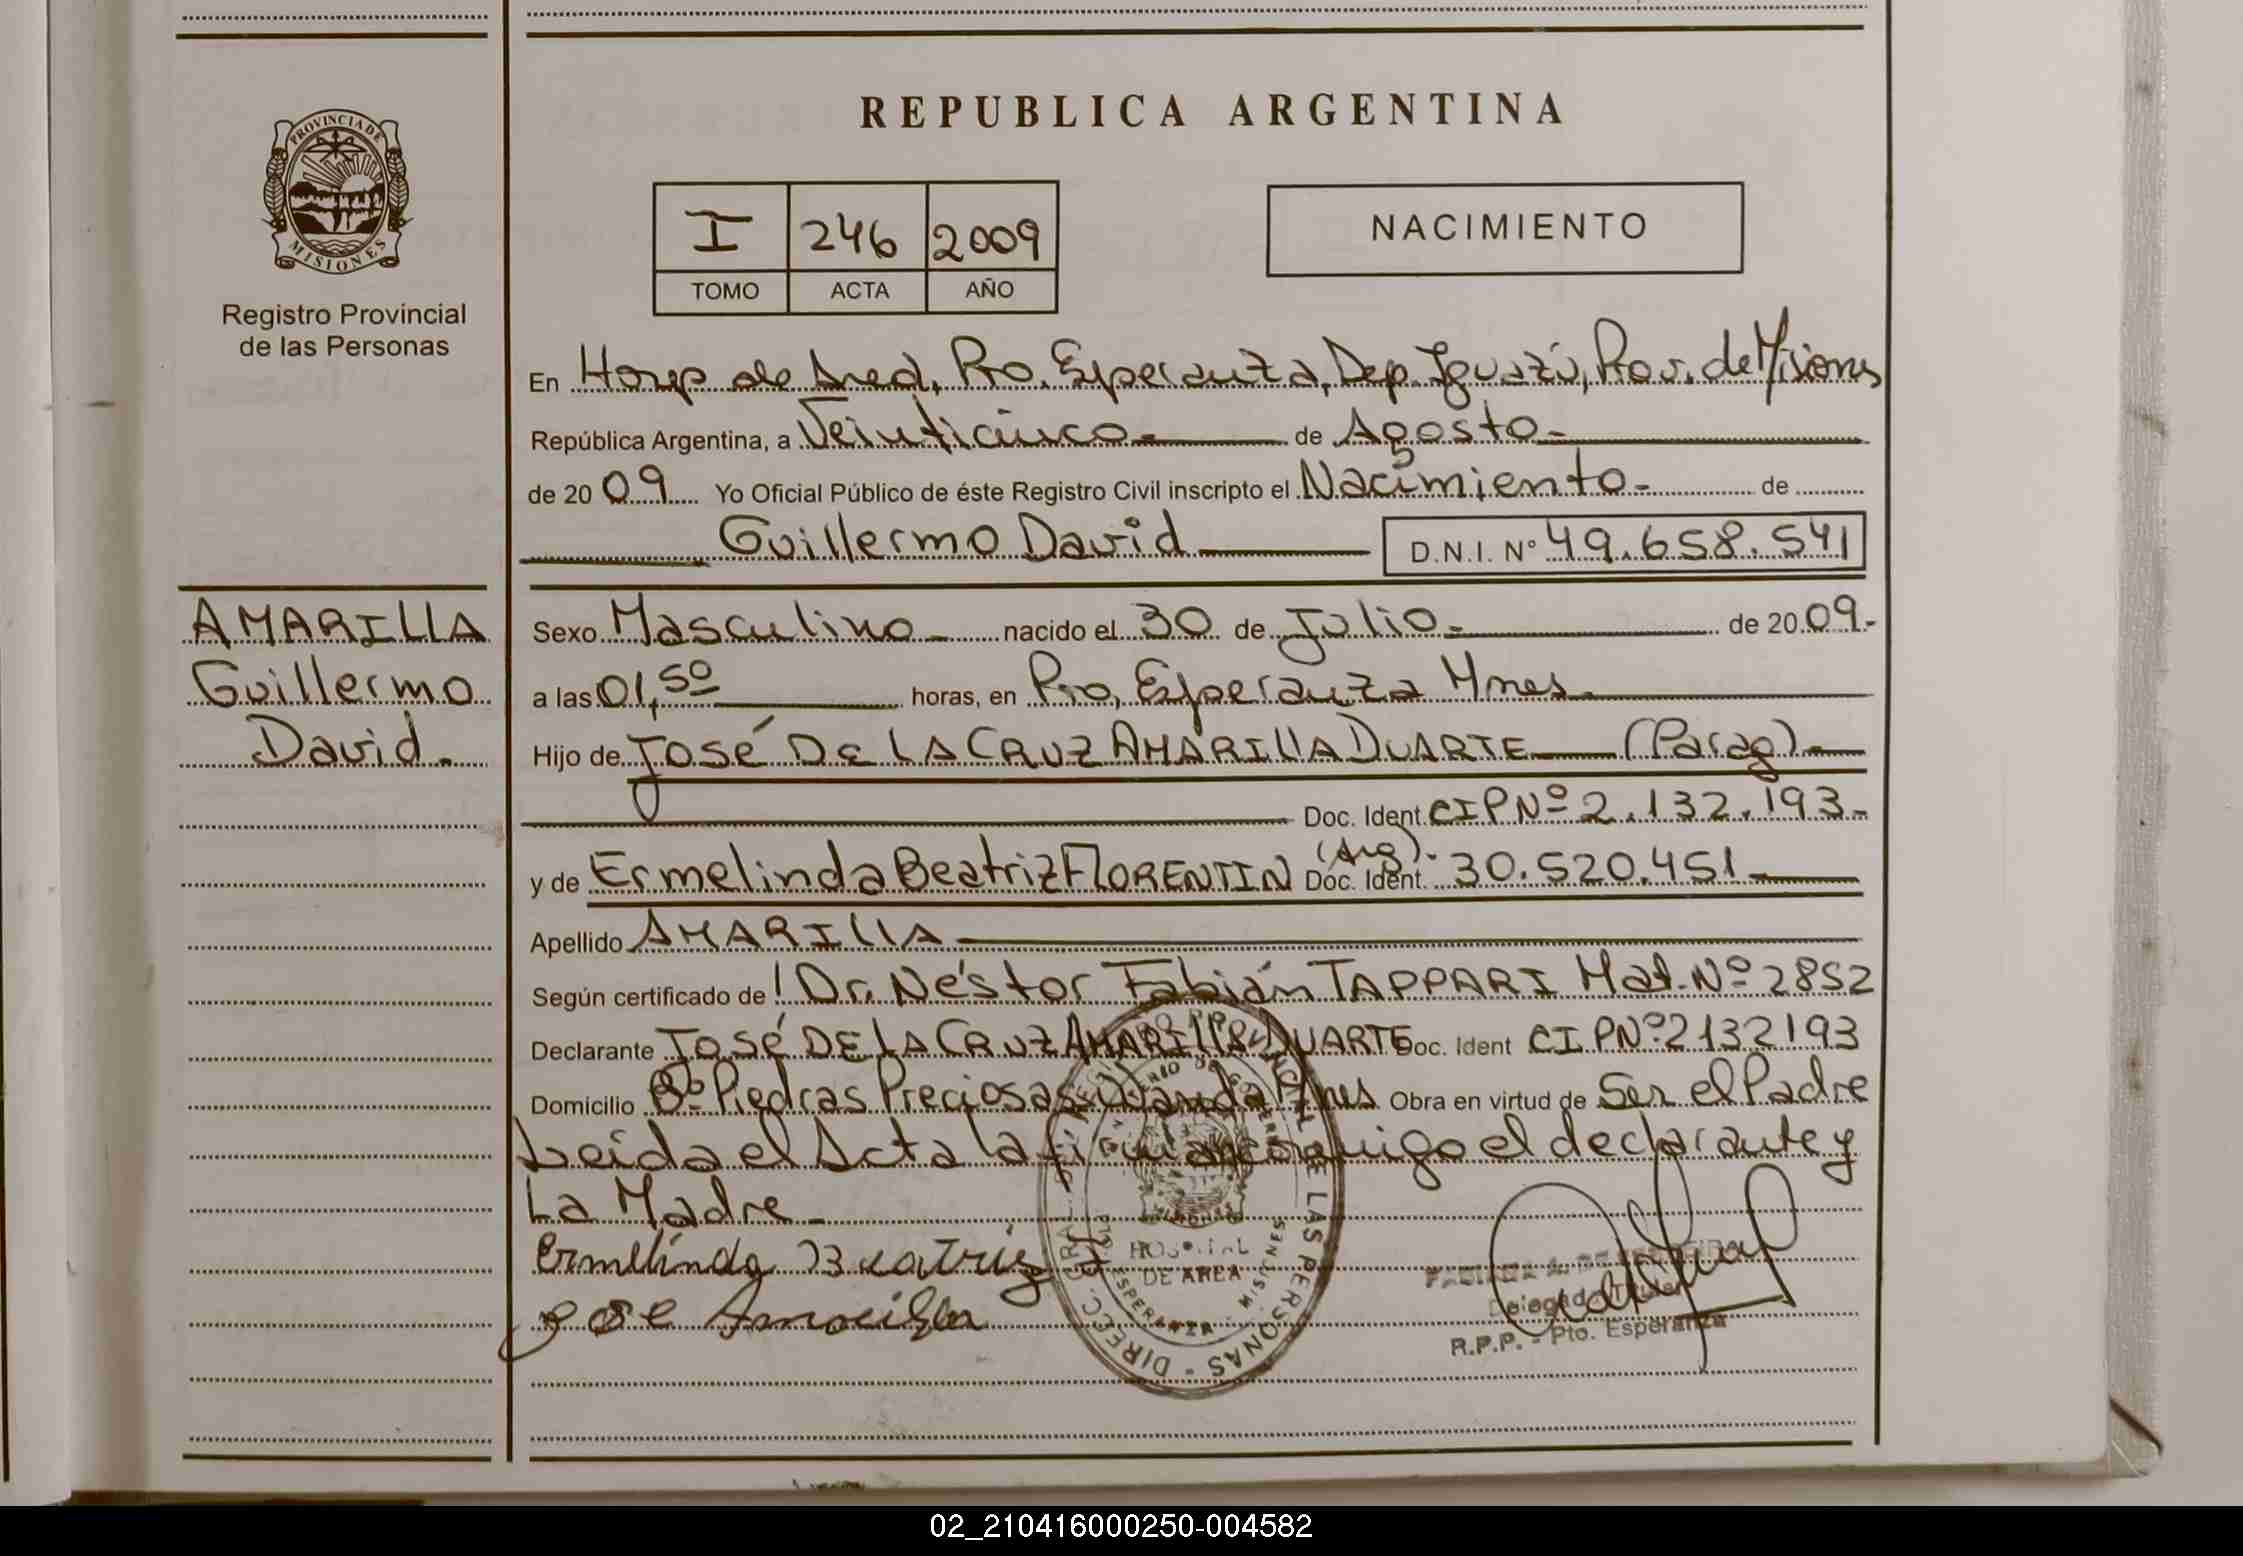 REPUBLICA ARGENTINA
PROVINCIA DE
MISIONES
Registro Provincial
de las Personas
I 246 2009
TOMO ACTA AÑO
NACIMIENTO
En Hosp de Area, Pto. Esperanza, Dep. Iguazú, Prov. de Misiones
República Argentina, a Veinticinco.- de Agosto.-
de 20 09 Yo Oficial Público de éste Registro Civil inscripto el Nacimiento.- de
Guillermo David D.N.I. N° 49.658.541
AMARILLA
Guillermo
David.-
Sexo Masculino.- nacido el 30 de Julio.- de 20 09.-
a las 01,50 horas, en Pto, Esperanza Mnes.
Hijo de José DE LA CRUZ AMARILLA DUARTE (Parag).-
Doc. Ident. CIPNº 2.132.193.-
y de Ermelinda Beatriz FLORENTIN (Arg).- Doc. Ident. 30.520.451.-
Apellido AMARILLA
Según certificado de Dr. Néstor Fabián TAPPARI Mat. Nº 2852
Declarante José DE LA CRUZ AMARILLA DUARTE Doc. Ident CIPNº 2132193
Domicilio Bº Piedras Preciosas Wanda Mnes Obra en virtud de Ser el Padre
Leida el Acta la firman conmigo el declarante y
La Madre.-
Ermelinda Beatriz
Jose Amarilla
HOSPITAL
DE AREA
ESPERANZA - MISIONES
DIRECC. GRAL. DE LAS PERSONAS
Delegada Titular
R.P.P. - Pto. Esperanza
02_210416000250-004582